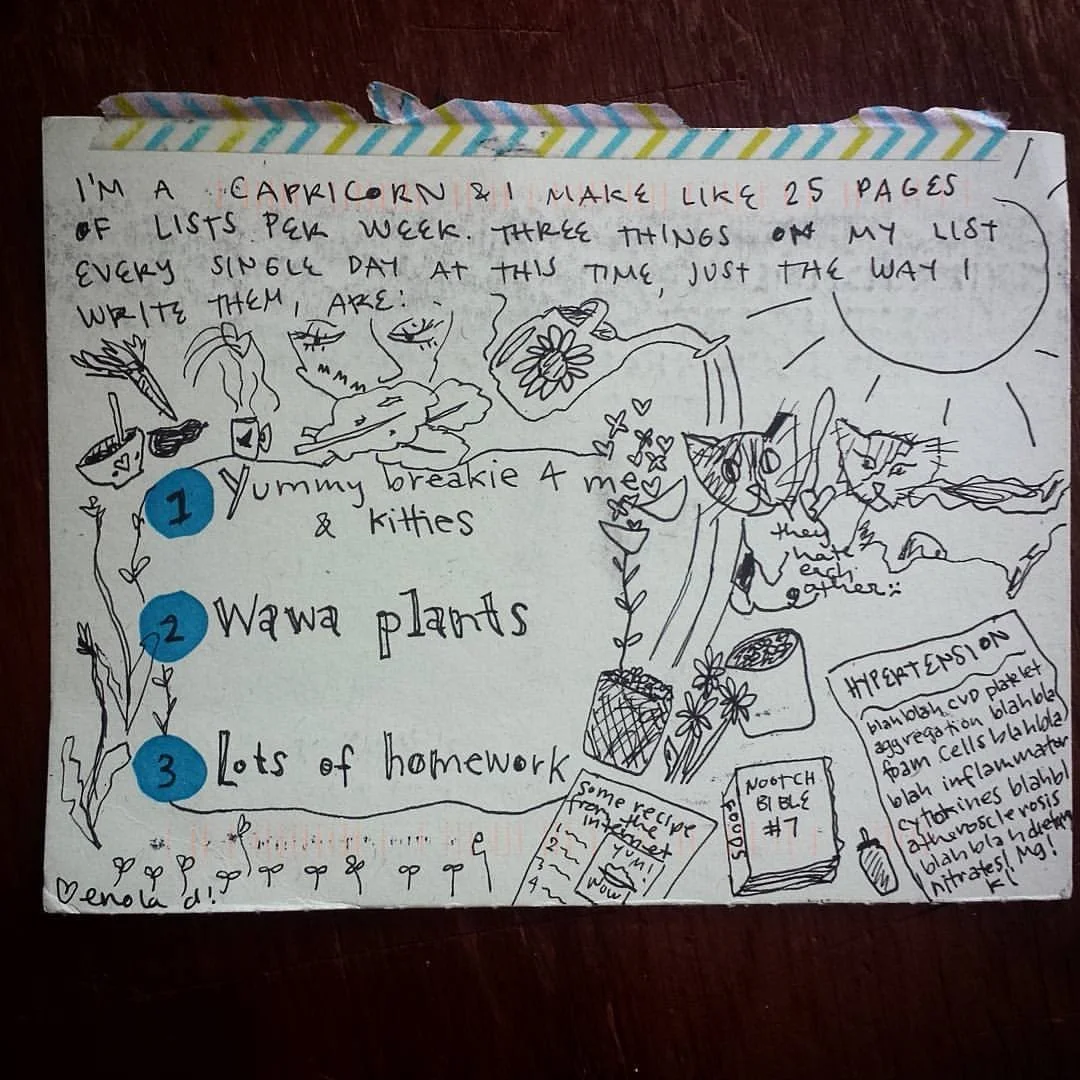 I'M A CAPRICORN & I MAKE LIKE 25 PAGES
OF LISTS PER WEEK. THREE THINGS ON MY LIST
EVERY SINGLE DAY AT THIS TIME, JUST THE WAY I
WRITE THEM, ARE:
1 Yummy breakie 4 me
& kitties
they
hate
each
other
2 Wawa plants
3 Lots of homework
HYPERTENSION
blah blah CVD platelet
aggregation blahbla
foam cells blahbla
blah inflammator
cytokines blahbl
atherosclerosis
blah blah dietary
nitrates! Mg!
K!
some recipe
from the
internet
1
2
3
4
YUM!
WOW
NOOTCH
BIBLE
#7
FOODS
♡enola d!